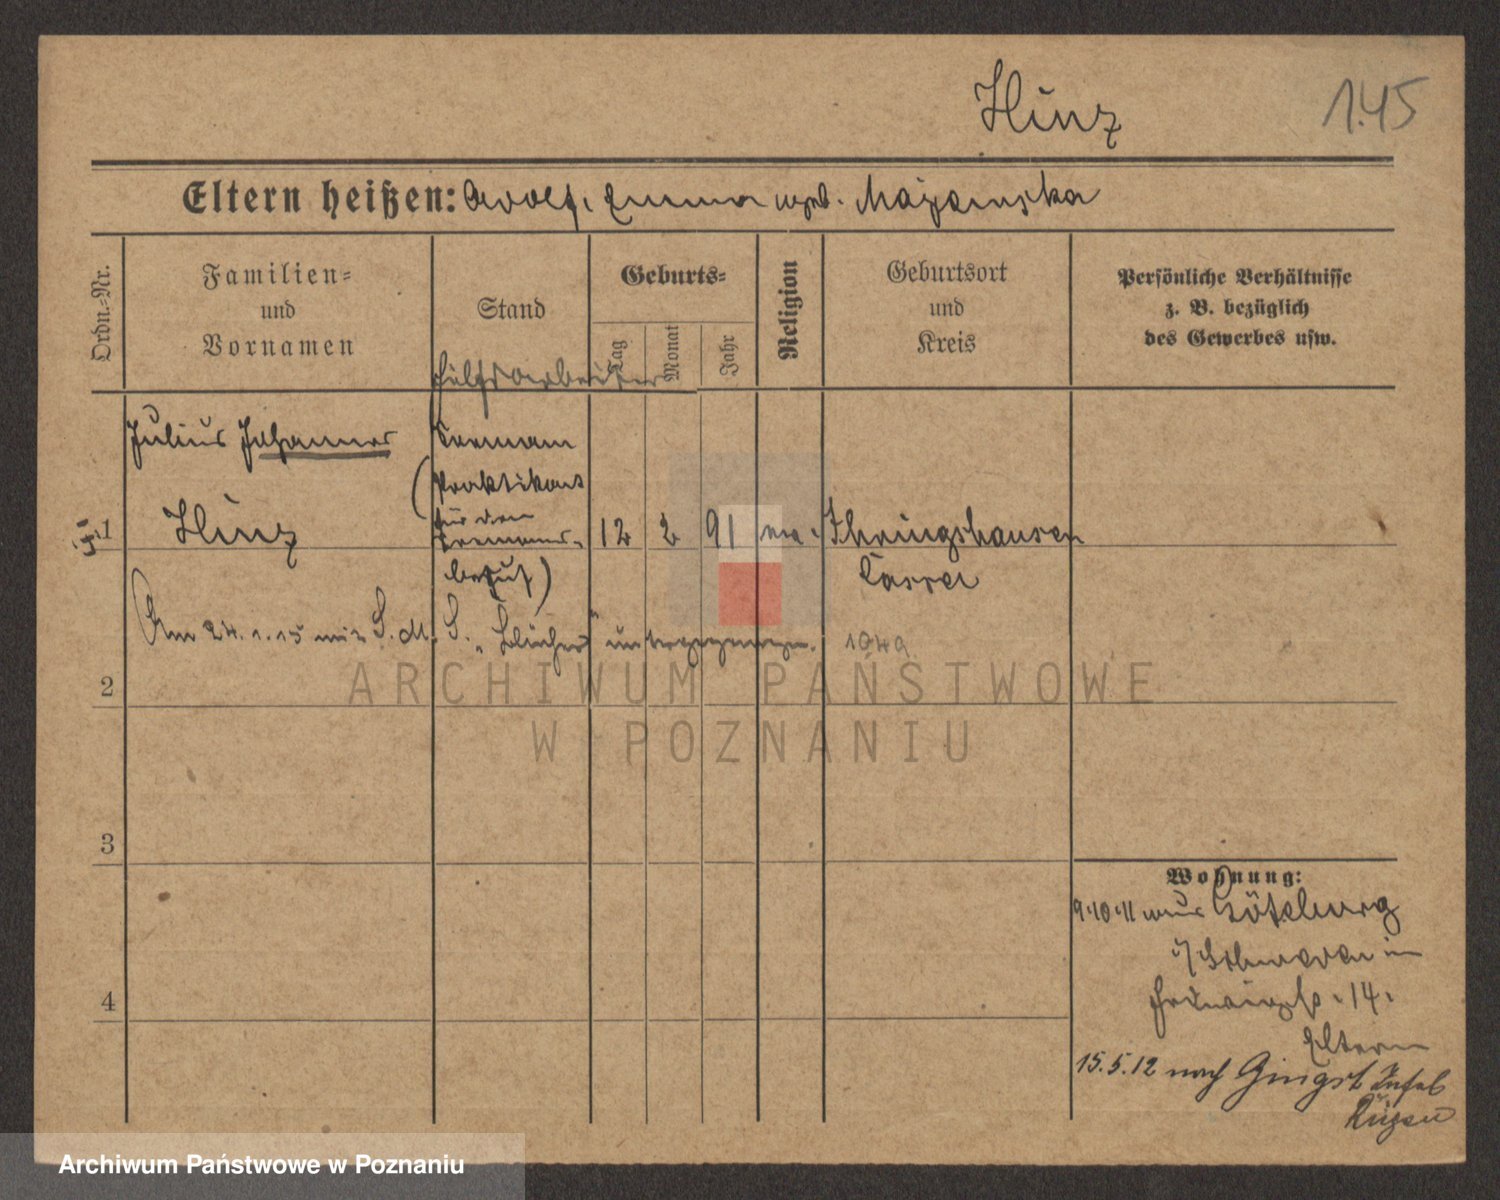 Hinz
145
Eltern heißen: Adolf. Emma geb.
Ordn.=Nr.
Familien=
und
Vornamen
Stand
Geburts=
Tag
Monat
Jahr
Religion
Geburtsort
und
Kreis
Persönliche Verhältnisse
z. B. bezüglich
des Gewerbes usw.
Hülfsarbeiter
Julius Johannes
Seemann
(Praktikant
für den
Seemanns-
beruf)
1
Hinz
12 2 91 ev. Ihringshausen
Cassel
Am 24.1.15 mit S.M.S. „Blücher“ untergegangen.
2
3
4
Wohnung:
9.10.11 aus Göteburg
i/Schweden in
14.
Eltern
15.5.12 nach Gingst Insel
Rügen
ARCHIWUM PAŃSTWOWE
W POZNANIU
Archiwum Państwowe w Poznaniu